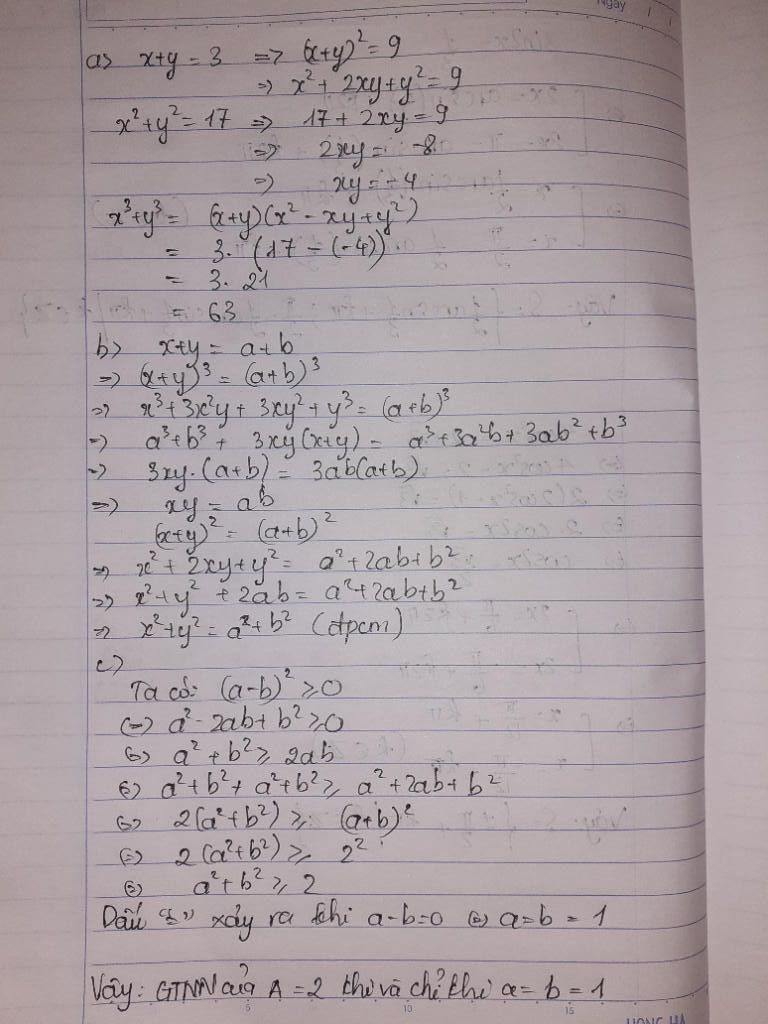 Ngày
a) x+y = 3 => (x+y)² = 9
=> x² + 2xy + y² = 9
x² + y² = 17 => 17 + 2xy = 9
=> 2xy = -8
=> xy = -4
x³+y³ = (x+y)(x² - xy + y²)
= 3. (17 - (-4))
= 3. 21
= 63
b) x+y = a+b
=> (x+y)³ = (a+b)³
=> x³ + 3x²y + 3xy² + y³ = (a+b)³
=> a³+b³ + 3xy(x+y) = a³+3a²b + 3ab² + b³
=> 3xy.(a+b) = 3ab(a+b)
=> xy = ab
(x+y)² = (a+b)²
=> x² + 2xy + y² = a² + 2ab + b²
=> x² + y² + 2ab = a² + 2ab + b²
=> x² + y² = a² + b² (đpcm)
c)
Ta có: (a-b)² ⩾ 0
(=) a² - 2ab + b² ⩾ 0
(=) a² + b² ⩾ 2ab
(=) a² + b² + a² + b² ⩾ a² + 2ab + b²
(=) 2(a² + b²) ⩾ (a+b)²
(=) 2(a² + b²) ⩾ 2²
(=) a² + b² ⩾ 2
Dấu "=" xảy ra khi a-b=0 (=) a=b = 1
Vậy: GTNN của A = 2 khi và chỉ khi a = b = 1
5 10 15
HONG HA